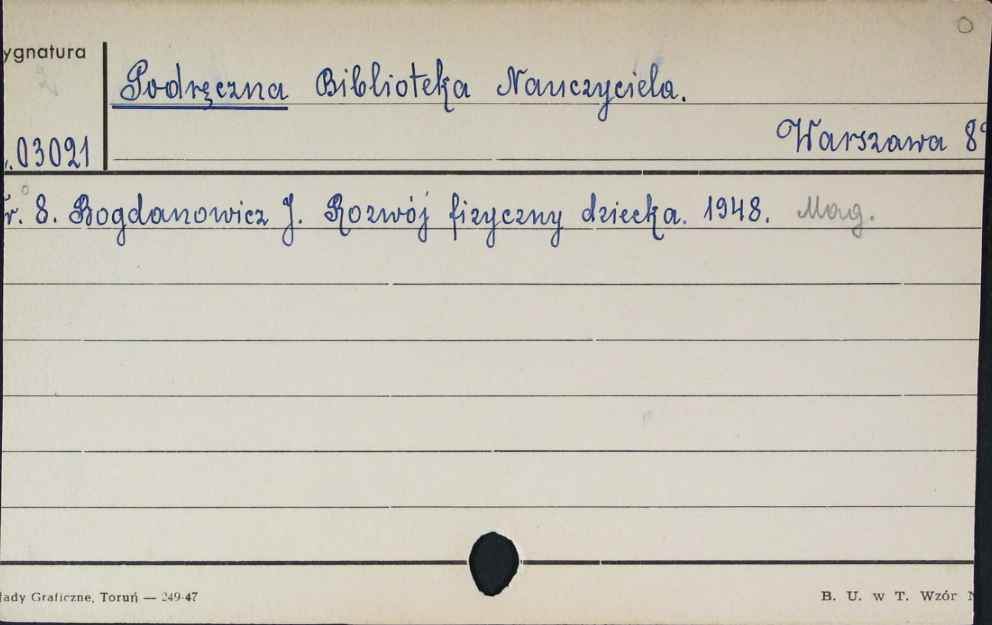 ygnatura
Podręczna Biblioteka Nauczyciela.
.03021
Warszawa 8°
r. 8. Bogdanowicz J. Rozwój fizyczny dziecka. 1948. Mag.
łady Graficzne, Toruń — 249-47
B. U. w T. Wzór N